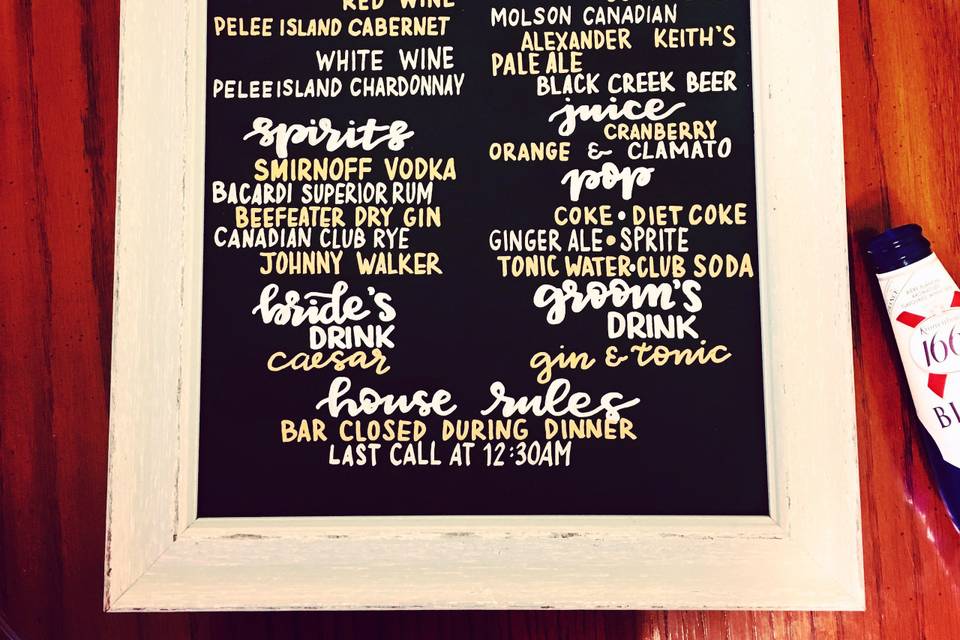 RED WINE
PELEE ISLAND CABERNET
WHITE WINE
PELEE ISLAND CHARDONNAY
spirits
SMIRNOFF VODKA
BACARDI SUPERIOR RUM
BEEFEATER DRY GIN
CANADIAN CLUB RYE
JOHNNY WALKER
bride's
DRINK
caesar
MOLSON CANADIAN
ALEXANDER KEITH'S
PALE ALE
BLACK CREEK BEER
juice
CRANBERRY
ORANGE & CLAMATO
pop
COKE • DIET COKE
GINGER ALE • SPRITE
TONIC WATER • CLUB SODA
groom's
DRINK
gin & tonic
house rules
BAR CLOSED DURING DINNER
LAST CALL AT 12:30AM
166
BL